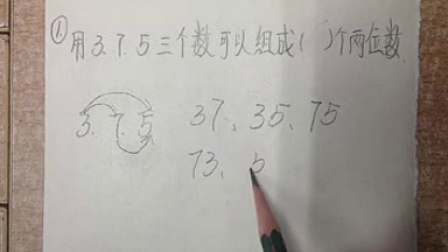 ①用3.7.5三个数可以组成( )个两位数.
3. 7. 5
37、35、75
73、5